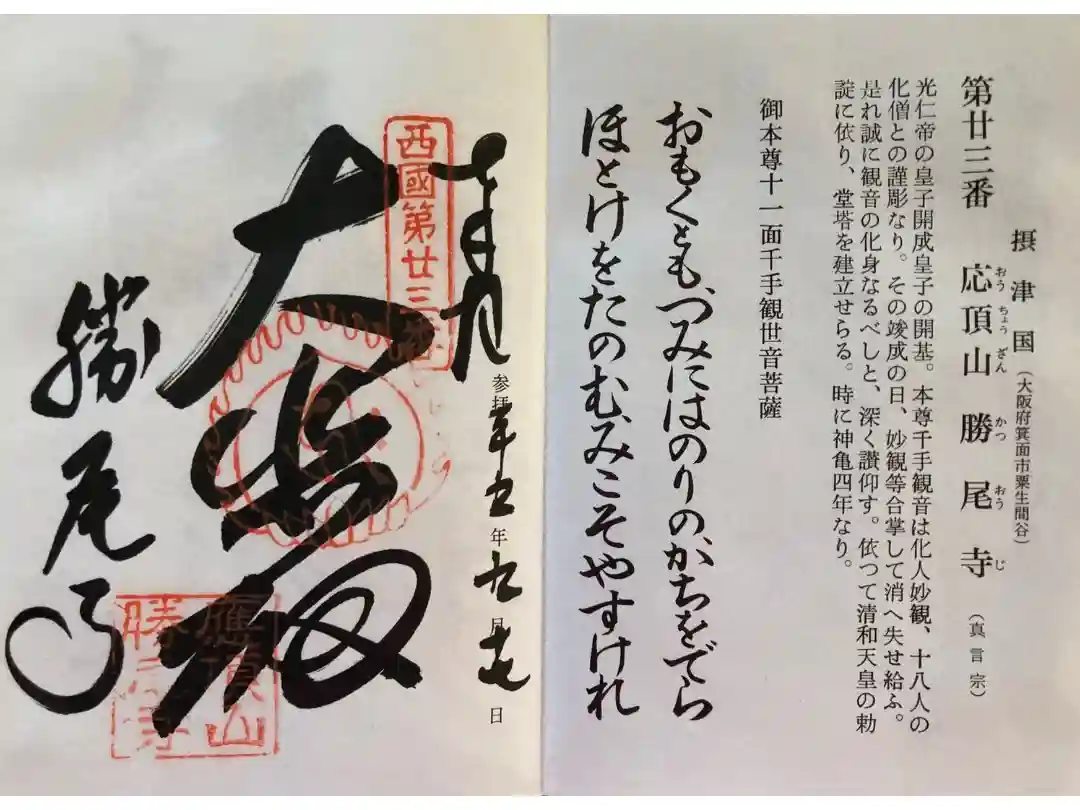 摂津国(大阪府箕面市粟生間谷)
第廿三番 応頂山 勝尾寺(真言宗)
おうちょうざん かつおうじ
光仁帝の皇子開成皇子の開基。本尊千手観音は化人妙観、十八人の
化僧との謹彫なり。その竣成の日、妙観等合掌して消へ失せ給ふ。
是れ誠に観音の化身なるべしと、深く讃仰す。依つて清和天皇の勅
諚に依り、堂塔を建立せらる。時に神亀四年なり。
御本尊十一面千手観世音菩薩
おもくとも、つみにはのりの、かちをでら
ほとけをたのむ、みこそやすけれ
参拝 年 九月 日
西國第廿三番
大悲殿
勝尾寺
應頂山
勝尾寺